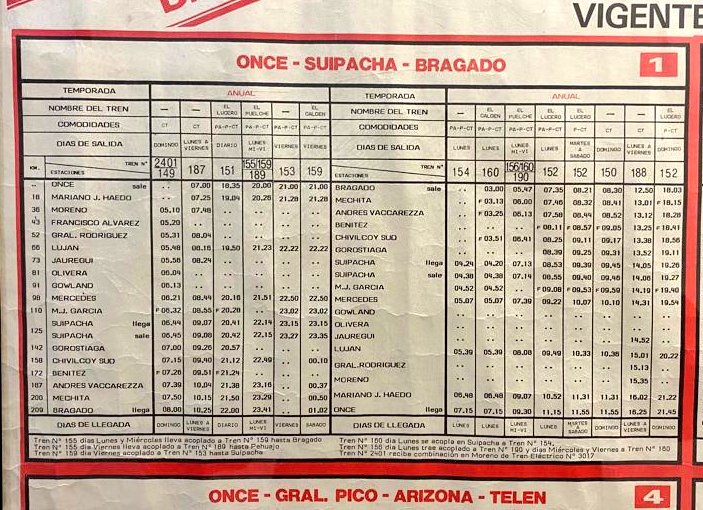 VIGENTE
ONCE - SUIPACHA - BRAGADO 1
TEMPORADA ANUAL
NOMBRE DEL TREN — — EL LUCERO EL PUELCHE — EL CALDEN
COMODIDADES CT CT PA-P-CT PA-P-CT PA-P-CT PA-P-CT
DIAS DE SALIDA DOMINGO LUNES A VIERNES DIARIO LUNES MI-VI VIERNES VIERNES
KM. ESTACIONES TREN N° 2401 149 187 151 155/159 189 153 159
.. ONCE sale .. 07.00 18.35 20.00 21.00 21.00
18 MARIANO J. HAEDO .. 07.25 19.04 20.28 21.28 21.28
36 MORENO 05.10 07.48 .. .. .. ..
43 FRANCISCO ALVAREZ 05.20 .. .. .. .. ..
52 GRAL. RODRIGUEZ 05.31 08.04 .. .. .. ..
66 LUJAN 05.48 08.16 19.50 21.23 22.22 22.22
73 JAUREGUI 05.56 08.24 .. .. .. ..
81 OLIVERA 06.04 .. .. .. .. ..
91 GOWLAND 06.13 .. .. .. .. ..
98 MERCEDES 06.21 08.44 20.16 21.51 22.50 22.50
110 M.J. GARCIA F 06.32 08.55 F 20.28 .. 23.02 23.02
125 SUIPACHA llega 06.44 09.07 20.41 22.14 23.15 23.15
SUIPACHA sale 06.45 09.08 20.42 22.15 23.27 23.35
142 GOROSTIAGA 07.00 09.26 20.57 .. .. ..
158 CHIVILCOY SUD 07.15 09.40 21.12 22.49 .. 00.10
172 BENITEZ F 07.26 09.51 F 21.24 .. .. ..
187 ANDRES VACCAREZZA 07.39 10.04 21.38 23.16 .. 00.37
200 MECHITA 07.50 10.15 21.50 23.29 .. 00.50
209 BRAGADO llega 08.00 10.25 22.00 23.41 .. 01.02
DIAS DE LLEGADA DOMINGO LUNES A VIERNES DIARIO LUNES MI-VI VIERNES SABADO
Tren N° 155 días Lunes y Miércoles lleva acoplado a Tren N° 159 hasta Bragado
Tren N° 155 día Viernes lleva acoplado a Tren N° 189 hasta Pehuajo
Tren N° 159 día Viernes acoplado a Tren N° 153 hasta Suipacha
TEMPORADA ANUAL
NOMBRE DEL TREN — EL CALDEN EL PUELCHE EL LUCERO EL LUCERO — — EL LUCERO
COMODIDADES PA-P-CT PA-P-CT PA-P-CT PA-P-CT PA-P-CT CT CT P-CT
DIAS DE SALIDA LUNES LUNES LUNES MI-VI LUNES MARTES A SABADO DOMINGO LUNES A VIERNES DOMINGO
ESTACIONES TREN N° 154 160 156/160 190 152 152 150 188 152
BRAGADO sale .. 03.00 05.47 07.35 08.21 08.30 12.50 18.03
MECHITA .. F 03.13 06.00 07.46 08.32 08.41 13.01 F 18.15
ANDRES VACCAREZZA .. F 03.25 06.13 07.58 08.44 08.52 13.12 18.28
BENITEZ .. .. .. F 08.11 F 08.57 F 09.05 13.25 F 18.41
CHIVILCOY SUD .. F 03.51 06.41 08.25 09.11 09.17 13.38 18.56
GOROSTIAGA .. .. .. 08.39 09.25 09.31 13.52 19.11
SUIPACHA llega 04.24 04.20 07.13 08.53 09.39 09.45 14.05 19.26
SUIPACHA sale 04.38 04.38 07.14 08.55 09.40 09.46 14.06 19.27
M.J. GARCIA 04.52 04.52 .. F 09.08 F 09.53 F 09.59 F 14.19 F 19.40
MERCEDES 05.07 05.07 07.39 09.22 10.07 10.10 14.31 19.54
GOWLAND
OLIVERA
JAUREGUI 14.52
LUJAN 05.39 05.39 08.08 09.49 10.33 10.36 15.01 20.22
GRAL.RODRIGUEZ 15.13
MORENO 15.35
MARIANO J. HAEDO 06.48 06.48 09.07 10.52 11.31 11.31 16.02 21.22
ONCE llega 07.15 07.15 09.30 11.15 11.55 11.55 16.25 21.45
DIAS DE LLEGADA LUNES LUNES LUNES MI-VI LUNES MARTES A SABADO DOMINGO LUNES A VIERNES DOMINGO
Tren N° 160 día Lunes se acopla en Suipacha a Tren N° 154.
Tren N° 156 día Lunes trae acoplado a Tren N° 190 y días Miércoles y Viernes a Tren N° 160
Tren N° 2401 recibe combinación en Moreno de Tren Eléctrico N° 3017
ONCE - GRAL. PICO - ARIZONA - TELEN 4